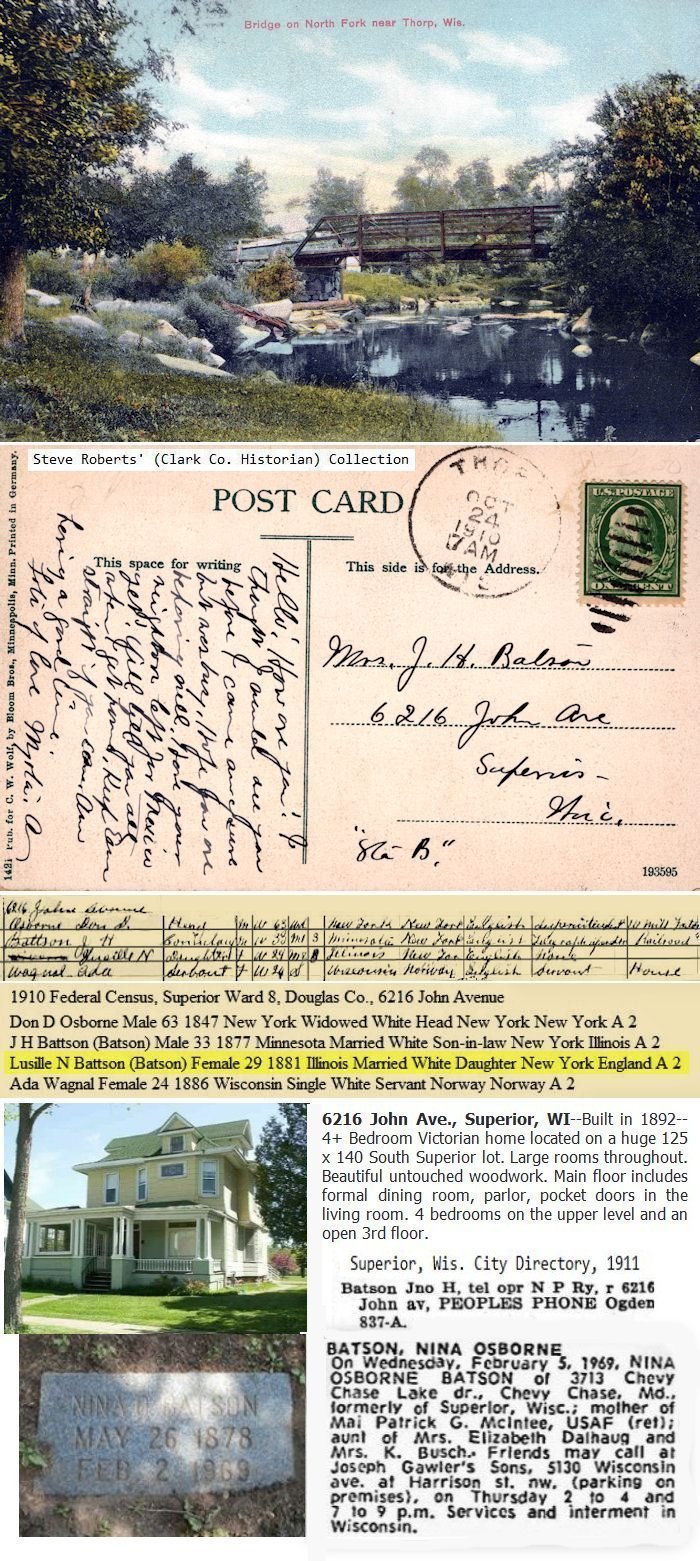 Bridge on North Fork near Thorp, Wis.
Steve Roberts' (Clark Co. Historian) Collection
1421 Pub. for C. W. Wolf, by Bloom Bros., Minneapolis, Minn. Printed in Germany.
POST CARD
This space for writing
This side is for the Address.
THOR
OCT
24
1910
7 AM
WIS
U.S. POSTAGE
ONE CENT
Hello! How are you? I
thought I would see you
before I came
but was busy. Hope you are
Have your
neighbors left for Mexico
yet? Will tell you all
when I get home. Keep Earn
straight if you can. Am
having a good time.
Lots of love
Mrs. J. H. Batson
6216 John Ave
Superior
Wis.
"Sta B."
193595
6216 John Avenue
Osborne Don D. Head M W 63 Wd New York New York English Superintendent
Battson J H M W 33 M1 3 Minnesota New York English Railroad
Lusille N Daughter F W 29 M1 Illinois New York English None
Wagnal Ada Servant F W 24 S Wisconsin Norway English Servant House
1910 Federal Census, Superior Ward 8, Douglas Co., 6216 John Avenue
Don D Osborne Male 63 1847 New York Widowed White Head New York New York A 2
J H Battson (Batson) Male 33 1877 Minnesota Married White Son-in-law New York Illinois A 2
Lusille N Battson (Batson) Female 29 1881 Illinois Married White Daughter New York England A 2
Ada Wagnal Female 24 1886 Wisconsin Single White Servant Norway Norway A 2
6216 John Ave., Superior, WI--Built in 1892--
4+ Bedroom Victorian home located on a huge 125
x 140 South Superior lot. Large rooms throughout.
Beautiful untouched woodwork. Main floor includes
formal dining room, parlor, pocket doors in the
living room. 4 bedrooms on the upper level and an
open 3rd floor.
Superior, Wis. City Directory, 1911
Batson Jno H, tel opr N P Ry, r 6216
John av, PEOPLES PHONE Ogden
837-A.
NINA O BATSON
MAY 26 1878
FEB 2 1969
BATSON, NINA OSBORNE
On Wednesday, February 5, 1969, NINA
OSBORNE BATSON of 3713 Chevy
Chase Lake dr., Chevy Chase, Md.,
formerly of Superior, Wisc.; mother of
Maj Patrick G. McIntee, USAF (ret);
aunt of Mrs. Elizabeth Dalhaug and
Mrs. K. Busch. Friends may call at
Joseph Gawler's Sons, 5130 Wisconsin
ave. at Harrison st. nw. (parking on
premises), on Thursday 2 to 4 and
7 to 9 p.m. Services and interment in
Wisconsin.